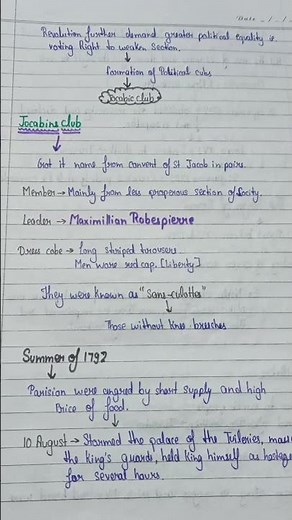 Date
Revolution further demand greater political equality i.e.
voting Right to weaker section.
Formation of Political cubs
Jocobic club
Jocabins club
Got it name from convent of St Jacob in paire.
Member → Mainly from less prosperous section of socity.
Leader → Maximillian Robespierre
Dress cobe → long striped trousers
Men ware red cap. [liberty]
They were known as "Sans-culottes"
Those without knee breeches
Summer of 1792
Parisian were angred by short supply and high
Price of food.
10 August → Stormed the palace of the Tuileries, mass
the King's guards, held King himself as hostage
for several hours.